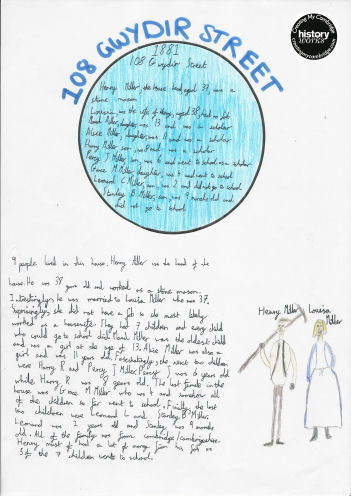 108 GWYDIR STREET
Creating My Cambridge
history
WORKS
1881
108 Gwydir Street
Henry Miller, the house head aged 39, was a
stone mason
Louisa, was the wife of Henry, aged 38, had no job
Maud Miller, daughter, was 13 and was a scholar
Alice Miller, daughter, was 11 and was a scholar
Harry Miller, son, was 8 and was a scholar
Percy J Miller, son, was 6 and went to school as a scholar
Grace M Miller, daughter, was 4 and went to school
Leonard C Miller, son, was 2 and did not go to school
Stanley B Miller, son, was 9 months old and
did not go to school
9 people lived in this house. Henry Miller was the head of the
house. He was 39 years old and worked as a stone mason.
Interestingly, he was married to Louisa Miller who was 37.
Surprisingly, she did not have a job so she most likely
worked as a housewife. They had 7 children and every child
who could go to school did. Maud Miller was the oldest child
and was a girl at the age of 13. Alice Miller was also a
girl and was 11 years old. Fascinatingly, the next two children
were Harry R and Percy J Miller. Percy J was 6 years old
while Harry R was 8 years old. The last female in the
house was Grace M Miller who was 4 and somehow all
of the children so far went to school. Finally, the last
two children were Leonard L and Stanley B Miller.
Leonard was 2 years old and Stanley was 9 months
old. All of the family was from Cambridge/Cambridgeshire.
Henry must of had a lot of money from his job as
5 of the 7 children went to school.
Henry Miller
Louisa
Miller